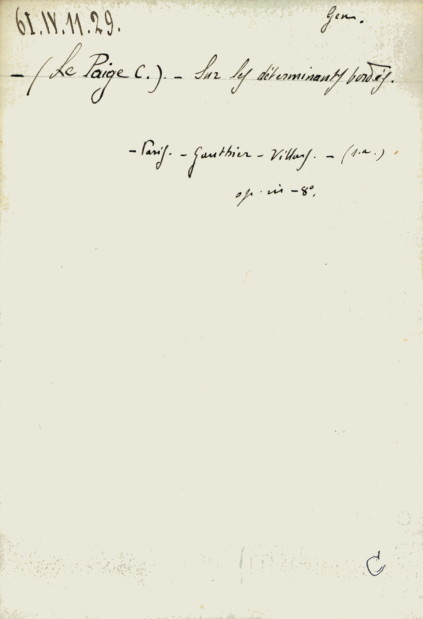 61.IV.11.29.
Gen.
- (Le Paige C.). - Sur les déterminants bordés.
- Paris. - Gauthier - Villars. - (s.a.)
op. in - 8°.
C